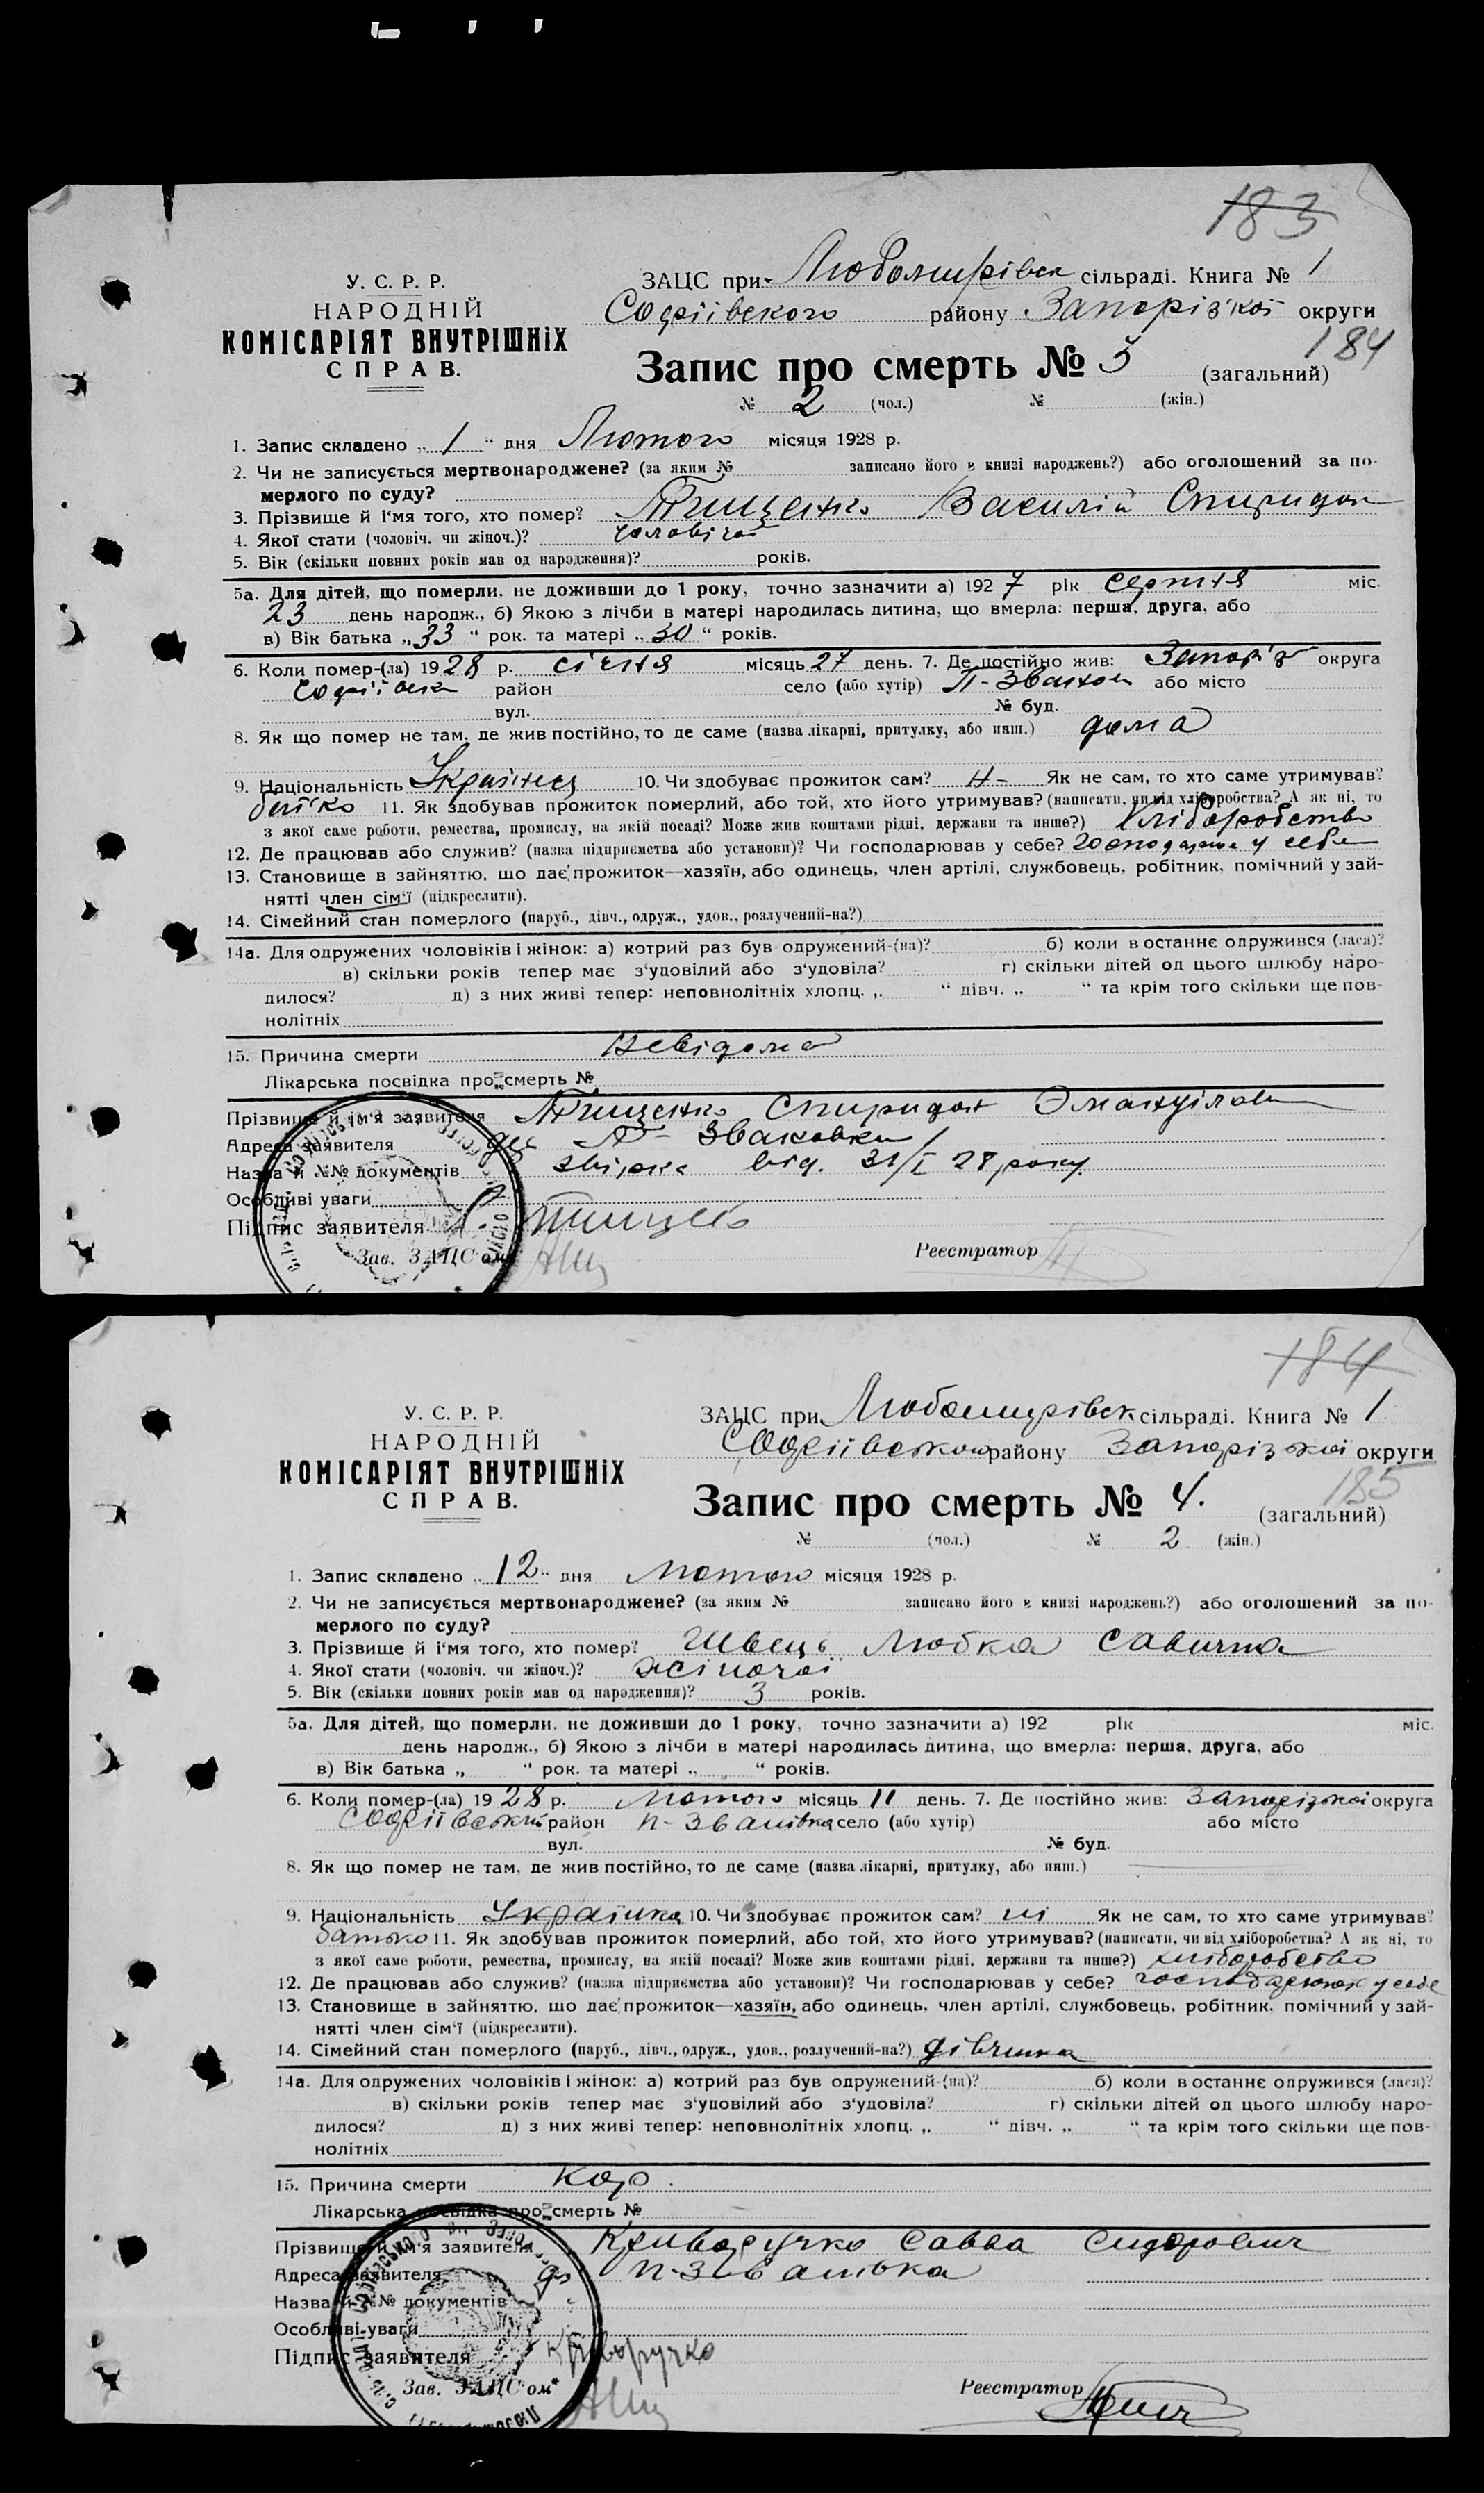 183
У. С. Р. Р.
НАРОДНІЙ
КОМІСАРІЯТ ВНУТРІШНІХ
СПРАВ.
ЗАЦС при Любомирівск сільраді. Книга № 1
Софіївского району Запорізкої округи
184
Запис про смерть № 3 (загальний)
№ 2 (чол.) № (жін.)
1. Запис складено „ 1 “ дня Лютого місяця 1928 р.
2. Чи не записується мертвонароджене? (за яким № записано його в книзі народжень?) або оголошений за по-
мерлого по суду?
3. Прізвище й і'мя того, хто помер? Тищенко Василій Спиридон
4. Якої стати (чоловіч. чи жіноч.)? чоловічої
5. Вік (скільки повних років мав од народження)? років.
5а. Для дітей, що померли, не доживши до 1 року, точно зазначити а) 192 7 рік серпня міс.
23 день народж., б) Якою з лічби в матері народилась дитина, що вмерла: перша, друга, або
в) Вік батька „ 33 “ рок. та матері „ 30 “ років.
6. Коли помер-(ла) 19 28 р. січня місяць 27 день. 7. Де постійно жив: Запоріз округа
Софіївск район село (або хутір) або місто
вул. № буд.
8. Як що помер не там, де жив постійно, то де саме (назва лікарні, притулку, або инш.) дома
9. Національність Українец 10. Чи здобуває прожиток сам? Н- Як не сам, то хто саме утримував?
батько 11. Як здобував прожиток померлий, або той, хто його утримував? (написати, чи від хліборобства? А як ні, то
з якої саме роботи, ремества, промислу, на якій посаді? Може жив коштами рідні, держави та инше?) Хліборобство
12. Де працював або служив? (назва підприємства або установи)? Чи господарював у себе? у себе
13. Становище в зайняттю, що дає прожиток—хазяїн, або одинець, член артілі, службовець, робітник, помічний у зай-
нятті член сім'ї (підкреслити).
14. Сімейний стан померлого (паруб., дівч., одруж., удов., розлучений-на?)
14а. Для одружених чоловіків і жінок: а) котрий раз був одружений-(на)? б) коли в останнє одружився (лася)?
в) скільки років тепер має з'удовілий або з'удовіла? г) скільки дітей од цього шлюбу наро-
дилося? д) з них живі тепер: неповнолітніх хлопц. „ “ дівч. „ “ та крім того скільки ще пов-
нолітніх
15. Причина смерти Невідома
Лікарська посвідка про смерть №
Прізвище й ім'я заявителя Тищенко Спиридон
Адреса заявителя
Назва й №№ документів від. 31/I 28 року
Особливі уваги
Підпис заявителя
Зав. ЗАЦС'ом Реєстратор
184
У. С. Р. Р.
НАРОДНІЙ
КОМІСАРІЯТ ВНУТРІШНІХ
СПРАВ.
ЗАЦС при Любомирівск сільраді. Книга № 1
Софіївського району Запорізкої округи
185
Запис про смерть № 4. (загальний)
№ (чол.) № 2 (жін.)
1. Запис складено „ 12 “ дня Лютого місяця 1928 р.
2. Чи не записується мертвонароджене? (за яким № записано його в книзі народжень?) або оголошений за по-
мерлого по суду?
3. Прізвище й і'мя того, хто помер? Швець Любка Савична
4. Якої стати (чоловіч. чи жіноч.)? жіночої
5. Вік (скільки повних років мав од народження)? 3 років.
5а. Для дітей, що померли, не доживши до 1 року, точно зазначити а) 192 рік міс.
день народж., б) Якою з лічби в матері народилась дитина, що вмерла: перша, друга, або
в) Вік батька „ “ рок. та матері „ “ років.
6. Коли помер-(ла) 19 28 р. Лютого місяць 11 день. 7. Де постійно жив: Запорізької округа
Софіївський район село (або хутір) або місто
вул. № буд.
8. Як що помер не там, де жив постійно, то де саме (назва лікарні, притулку, або инш.)
9. Національність Українка 10. Чи здобуває прожиток сам? ні Як не сам, то хто саме утримував?
батько 11. Як здобував прожиток померлий, або той, хто його утримував? (написати, чи від хліборобства? А як ні, то
з якої саме роботи, ремества, промислу, на якій посаді? Може жив коштами рідні, держави та инше?) хліборобство
12. Де працював або служив? (назва підприємства або установи)? Чи господарював у себе? у себе
13. Становище в зайняттю, що дає прожиток—хазяїн, або одинець, член артілі, службовець, робітник, помічний у зай-
нятті член сім'ї (підкреслити).
14. Сімейний стан померлого (паруб., дівч., одруж., удов., розлучений-на?) дівчина
14а. Для одружених чоловіків і жінок: а) котрий раз був одружений-(на)? б) коли в останнє одружився (лася)?
в) скільки років тепер має з'удовілий або з'удовіла? г) скільки дітей од цього шлюбу наро-
дилося? д) з них живі тепер: неповнолітніх хлопц. „ “ дівч. „ “ та крім того скільки ще пов-
нолітніх
15. Причина смерти Кор.
Лікарська посвідка про смерть №
Прізвище й ім'я заявителя Криворучко Савва Сидорович
Адреса заявителя
Назва й №№ документів
Особливі уваги
Підпис заявителя Криворучко
Зав. ЗАЦС'ом Реєстратор